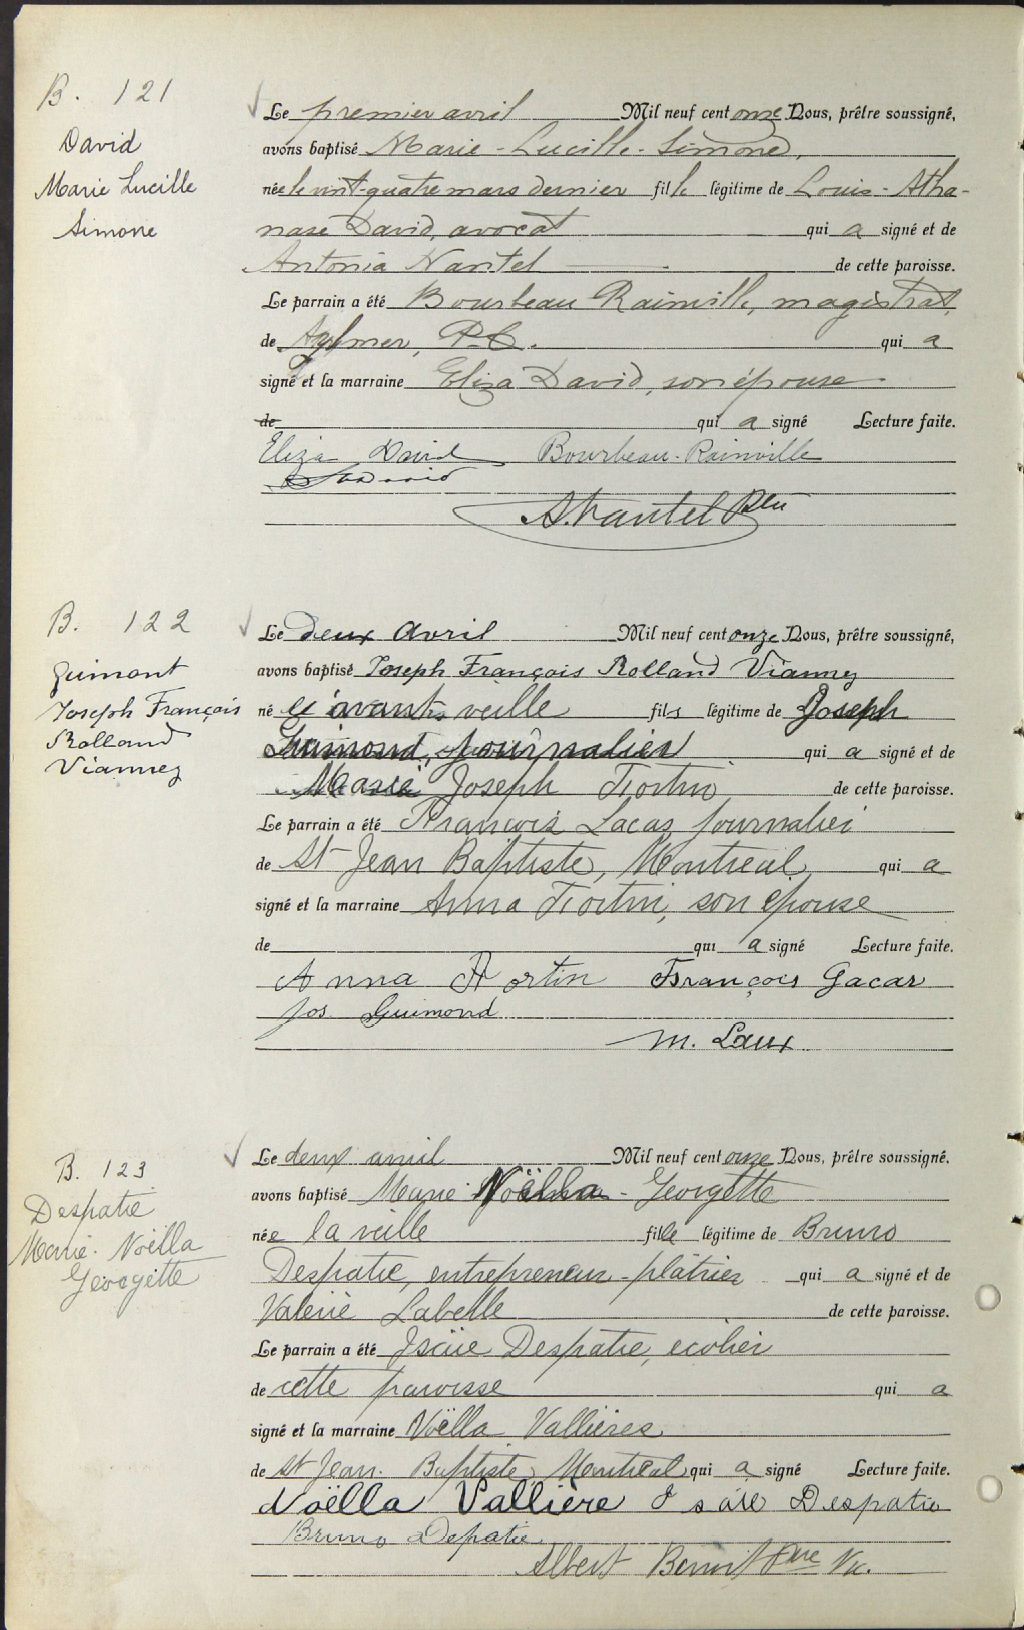 B. 121
David
Marie Lucille
Simone
Le premier avril Mil neuf cent onze Nous, prêtre soussigné,
avons baptisé Marie-Lucille-Simone,
née le vint-quatre mars dernier fille légitime de Louis-Atha-
nase David, avocat qui a signé et de
Antonia Nantel de cette paroisse.
Le parrain a été Bourbeau Rainville, magistrat,
de Aylmer, P.Q. qui a
signé et la marraine Eliza David, son épouse
de qui a signé Lecture faite.
Eliza David Bourbeau-Rainville
David
A. Nantel Ptre
B. 122
Guimont
Joseph François
Rolland
Vianney
Le deux Avril Mil neuf cent onze Nous, prêtre soussigné,
avons baptisé Joseph François Rolland Vianney
né l'avant veille fils légitime de Joseph
Guimond, journalier qui a signé et de
Marie Joseph Fortin de cette paroisse.
Le parrain a été François Lacas journalier
de St Jean Baptiste, Montreal, qui a
signé et la marraine Anna Fortin, son epouse
de qui a signé Lecture faite.
Anna Fortin François Gacas
Jos. Guimond
M. Laux
B. 123
Despatie
Marie. Noëlla
Georgette
Le deux avril Mil neuf cent onze Nous, prêtre soussigné.
avons baptisé Marie-Noëlla-Georgette
née la veille fille légitime de Bruno
Despatie, entrepreneur-plâtrier qui a signé et de
Valérie Labelle de cette paroisse.
Le parrain a été Isaïe Despatie, ecolier
de cette paroisse qui a
signé et la marraine Noëlla Vallières
de St Jean-Baptiste, Montréal qui a signé Lecture faite.
Noëlla Vallière Isaïe Despatie
Bruno Depatie
Albert Benoit Ptre Vic.